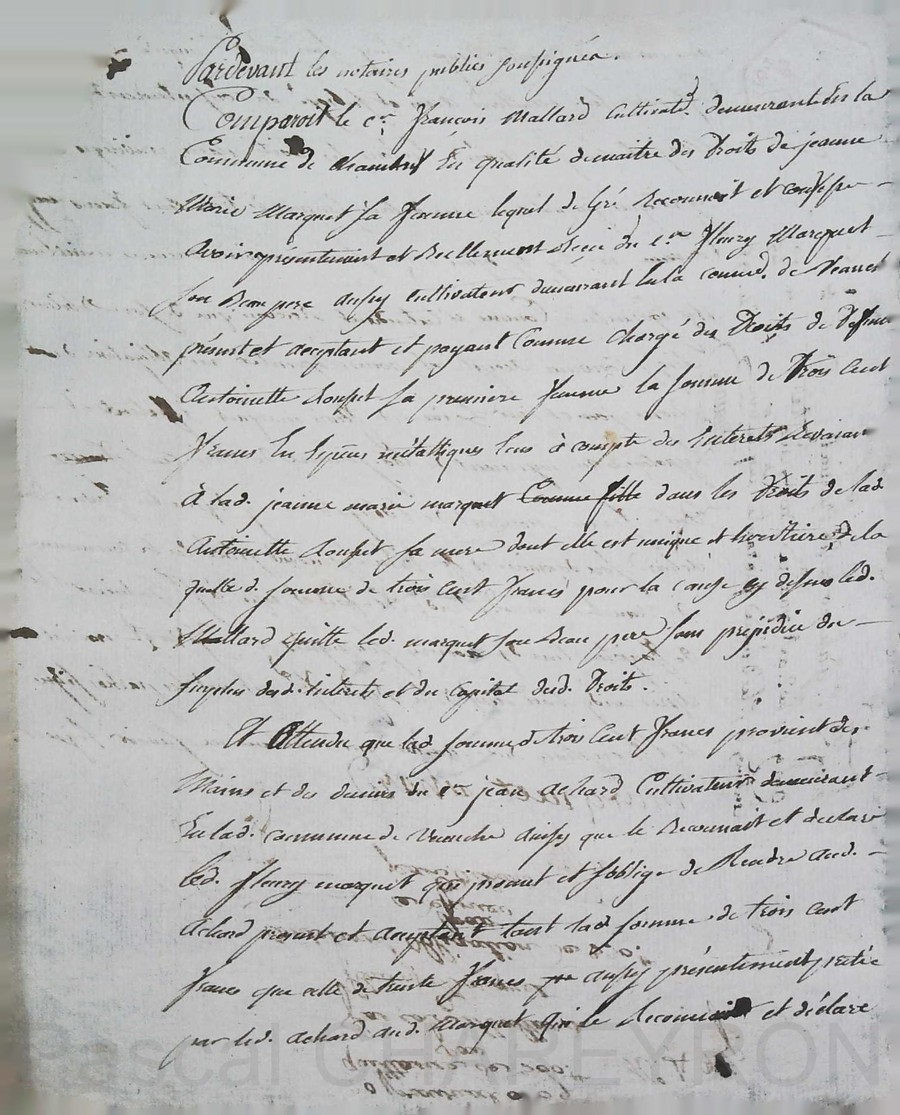 Pardevant les notaires publics soussignés.
Comparoit le c.en françois Mallard Cultivat.r demeurant En la
Commune de En qualité de maitre des Droits de jeanne
Marie Marquet Sa femme lequel de Gré Reconnoit et confesse
Avoir présentement et Reellement Recu du c.en fleury Marquet
Son Beau pere aussy cultivateur demeurant En la comm.e de
présent et acceptant et payant Comme chargé des Droits de Deffunte
Antoinette Sa premiere femme la somme de trois Cent
francs En Especes métalliques Et ce à compte des interets Revenant
à lad. jeanne marie marquet dans les Droits de lad
Antoinette sa mere dont elle est unique et hoeritière de la
quelle d. somme de trois Cent francs pour la cause cy dessus led.
Mallard quitte led. marquet son Beau pere sans prejudice du
surplus desd. interets et du capital desd. Droits.
Et Attendu que lad somme de trois Cent francs provient des
Mains et des deniers du c.en jean achard Cultivateur demeurant
En lad. commune de aussy que le Reconnoit et declare
led. fleury marquet qui promet et soblige de Rendre aud.
achard present et acceptant tant lad somme de trois cent
francs que celle de trente francs aussy présentement pretée
par led. achard aud. Marquet qui le Reconnoit et déclare
Pascal CHAREYRON